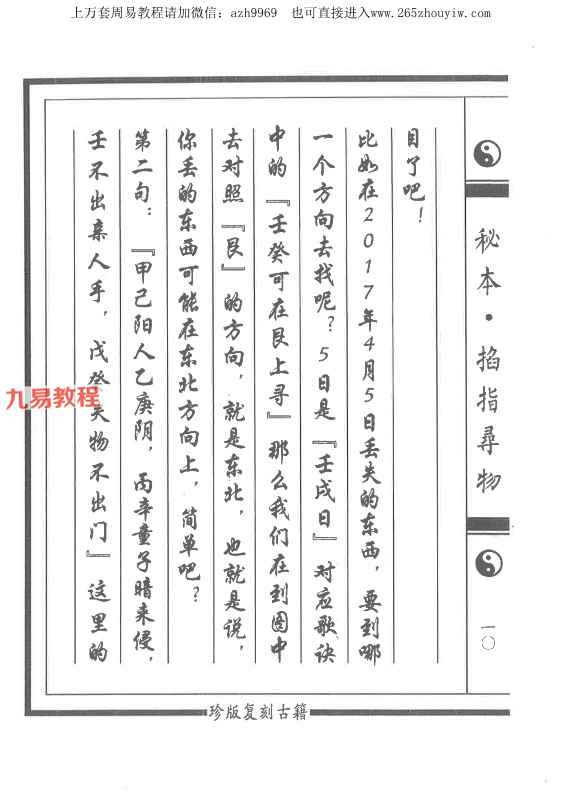 上万套周易教程请加微信：azh9969　也可直接进入www.265zhouyiw.com
秘本·掐指尋物
一〇
目了吧！
比如在2017年4月5日丢失的东西，要到哪
一个方向去找呢？5日是『壬戌日』对应歌诀
中的『壬癸可在艮上寻』那么我们在到图中
去对照『艮』的方向，就是东北，也就是说，
你丢的东西可能在东北方向上，简单吧？
第二句：『甲己阳人乙庚阴，丙辛童子暗来侵，
壬不出亲人手，戊癸失物不出门』这里的
九易教程
珍版复刻古籍